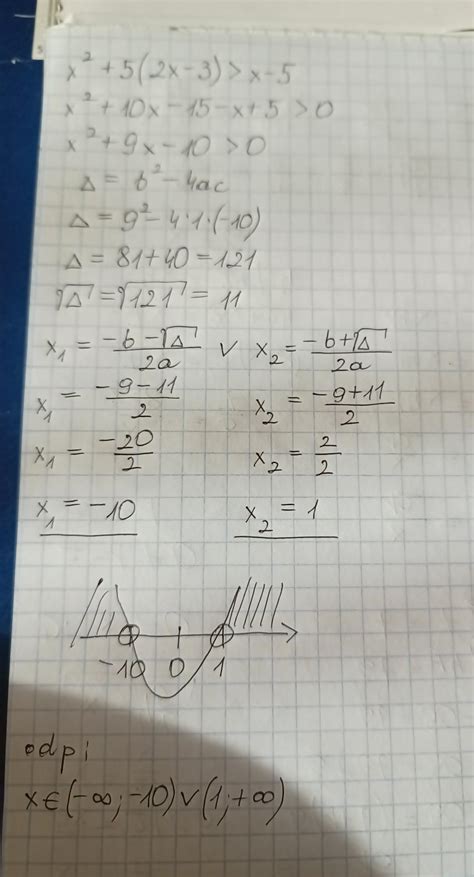 x² + 5(2x-3) > x-5
x² + 10x - 15 - x + 5 > 0
x² + 9x - 10 > 0
Δ = b² - 4ac
Δ = 9² - 4·1·(-10)
Δ = 81 + 40 = 121
√Δ = √121 = 11
x₁ = (-b - √Δ)/2a ∨ x₂ = (-b + √Δ)/2a
x₁ = (-9-11)/2 x₂ = (-9+11)/2
x₁ = -20/2 x₂ = 2/2
x₁ = -10 x₂ = 1
-10 0 1
odp:
x∈(-∞; -10) ∨ (1; +∞)